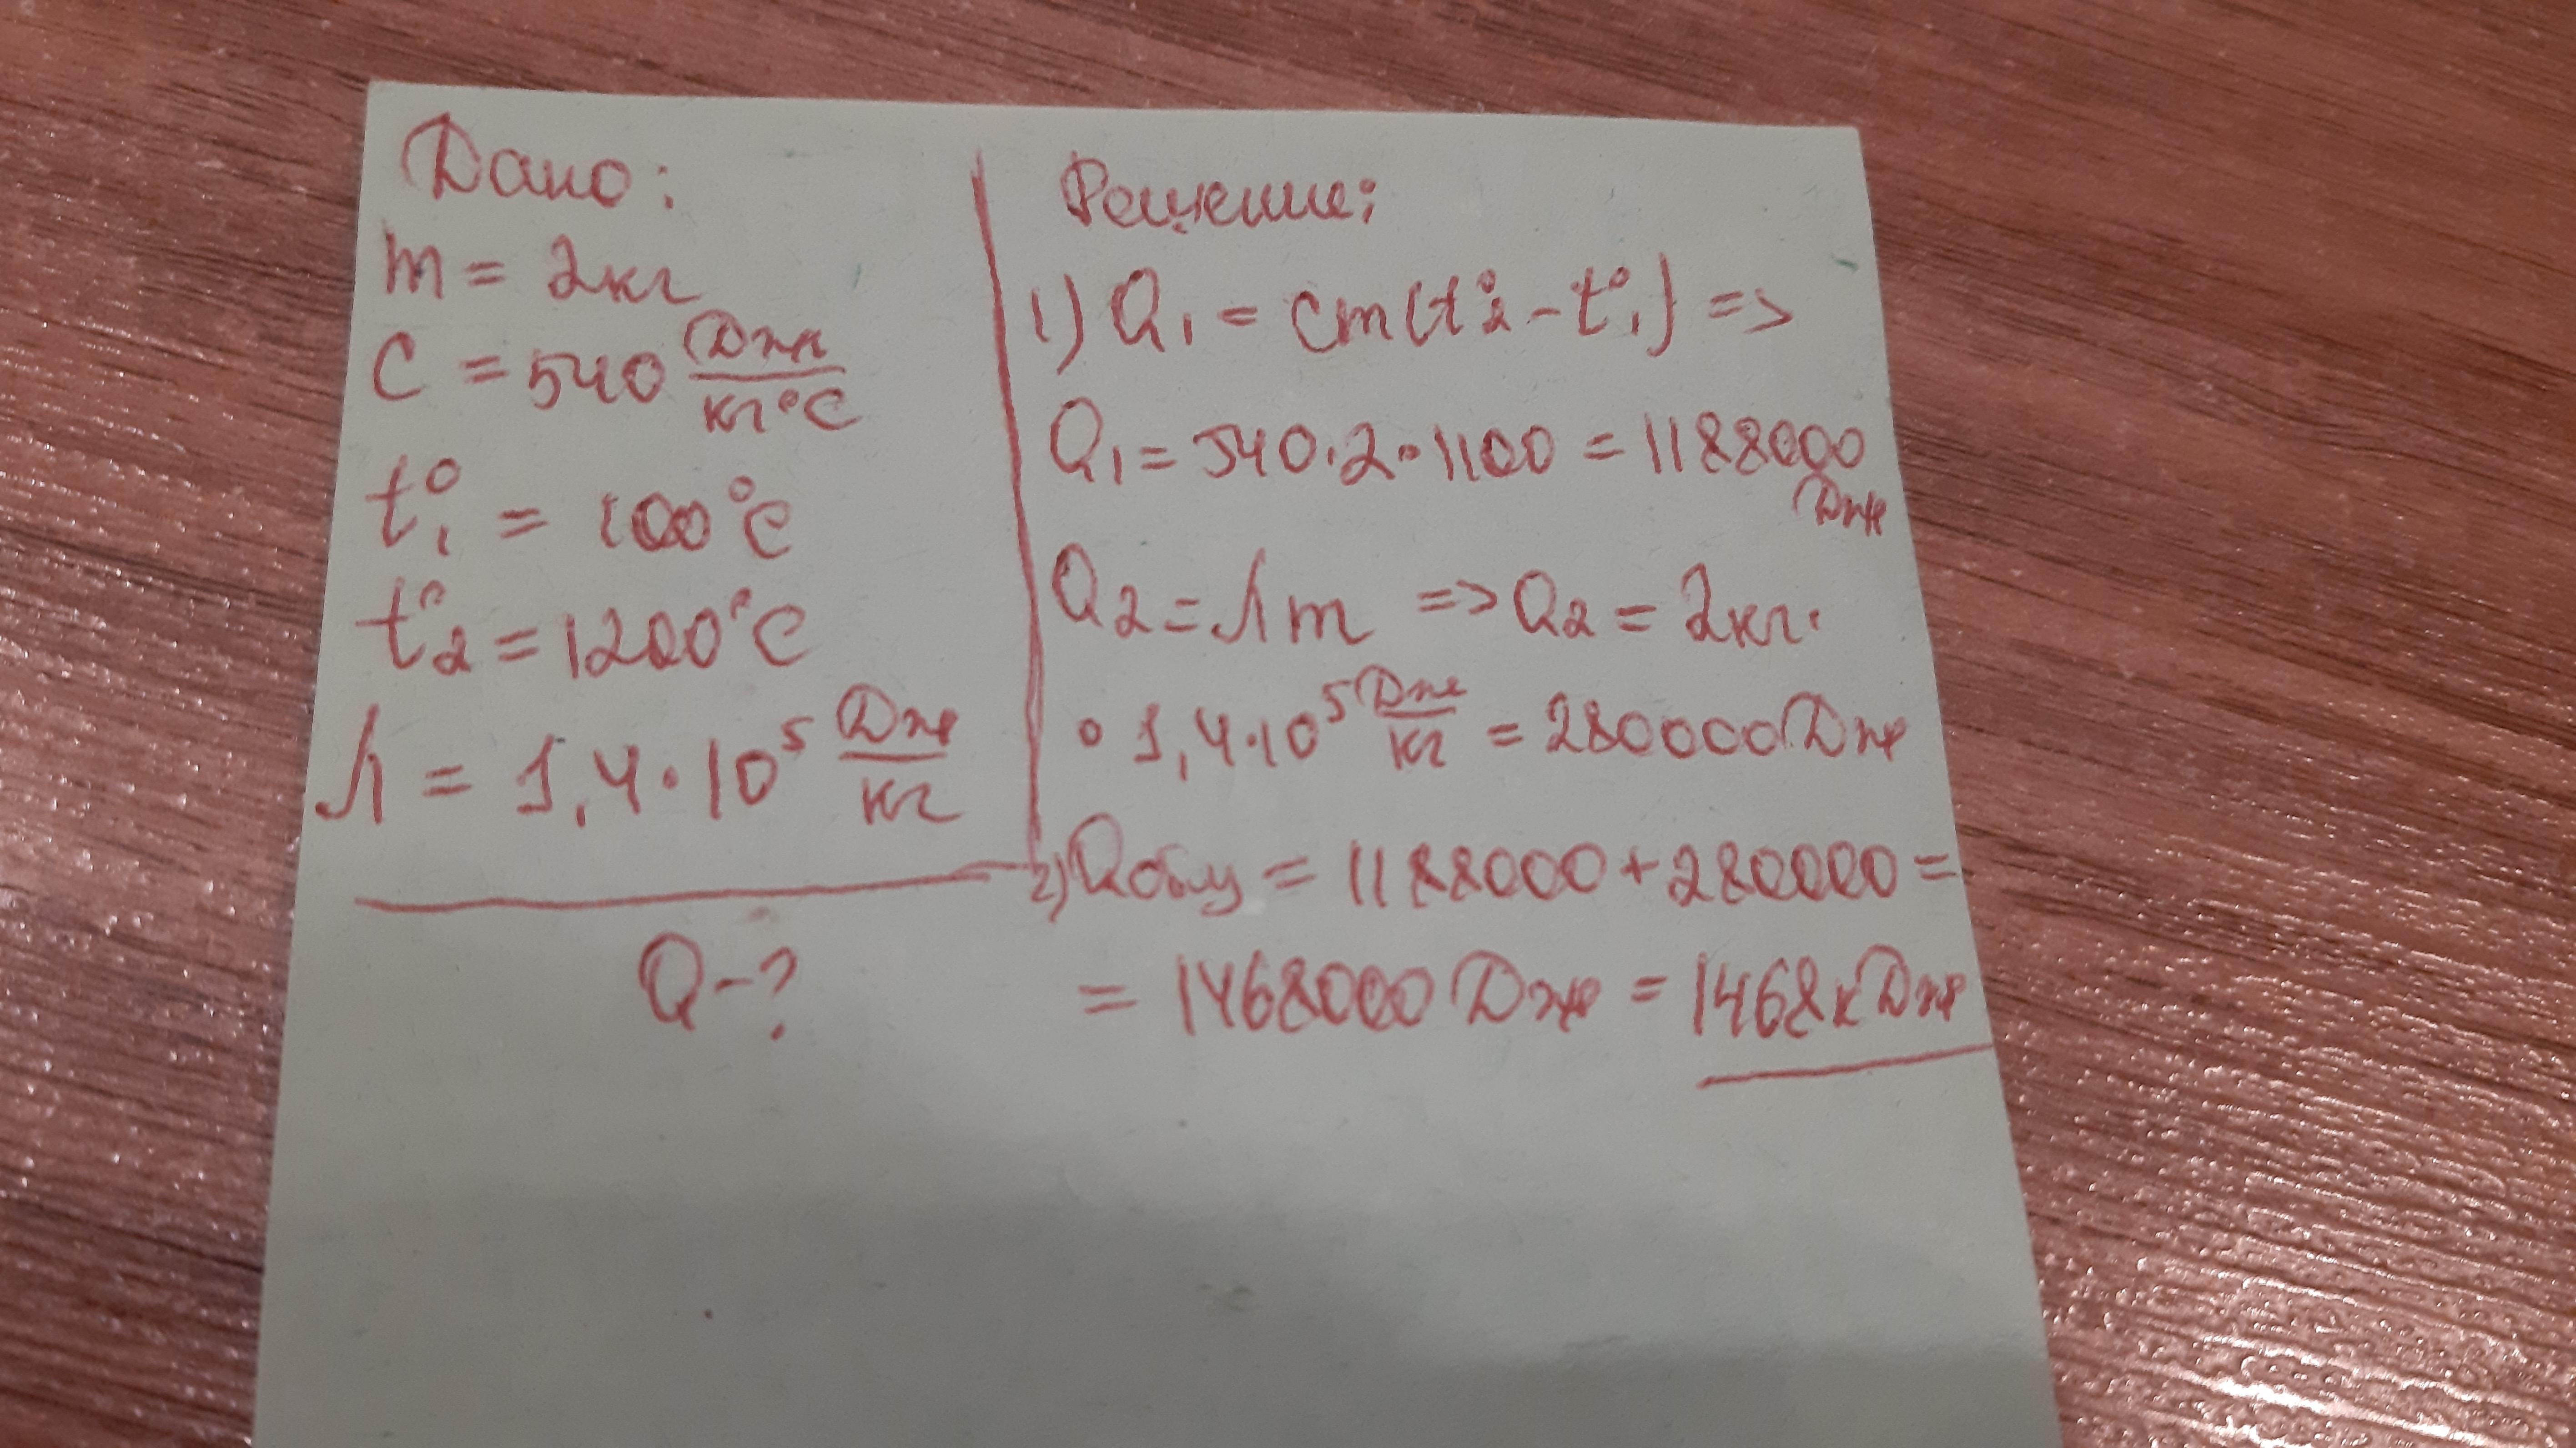 Дано:
m = 2кг
C = 540 Дж/кг°C
t°₁ = 100°C
t°₂ = 1200°C
λ = 1,4·10⁵ Дж/кг
Q-?
Решение:
1) Q₁ = cm(t°₂-t°₁) =>
Q₁ = 540·2·1100 = 1188000
Дж
Q₂ = λm => Q₂ = 2кг·
· 1,4·10⁵ Дж/кг = 280000Дж
2) Qобщ = 1188000+280000=
= 1468000 Дж = 1468кДж